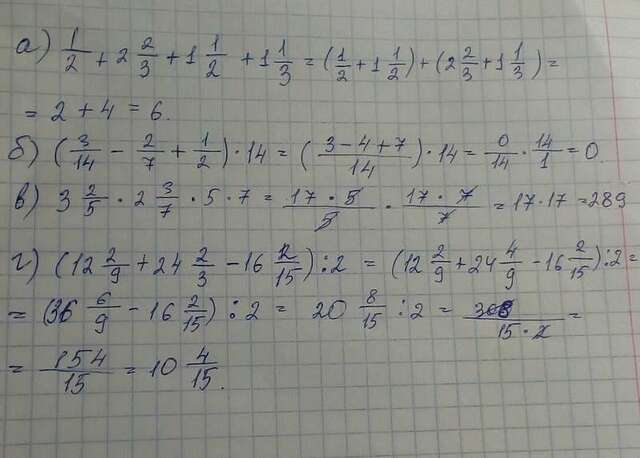 а) 1/2 + 2 2/3 + 1 1/2 + 1 1/3 = (1/2 + 1 1/2) + (2 2/3 + 1 1/3) =
= 2 + 4 = 6.
б) (3/14 - 2/7 + 1/2) · 14 = (3 - 4 + 7/14) · 14 = 0/14 · 14/1 = 0
в) 3 2/5 · 2 3/7 · 5 · 7 = 17 · 5/5 · 17 · 7/7 = 17 · 17 = 289
г) (12 2/9 + 24 2/3 - 16 2/15) : 2 = (12 2/9 + 24 4/9 - 16 2/15) : 2 =
= (36 6/9 - 16 2/15) : 2 = 20 8/15 : 2 = 308/15 · 2 =
= 154/15 = 10 4/15.